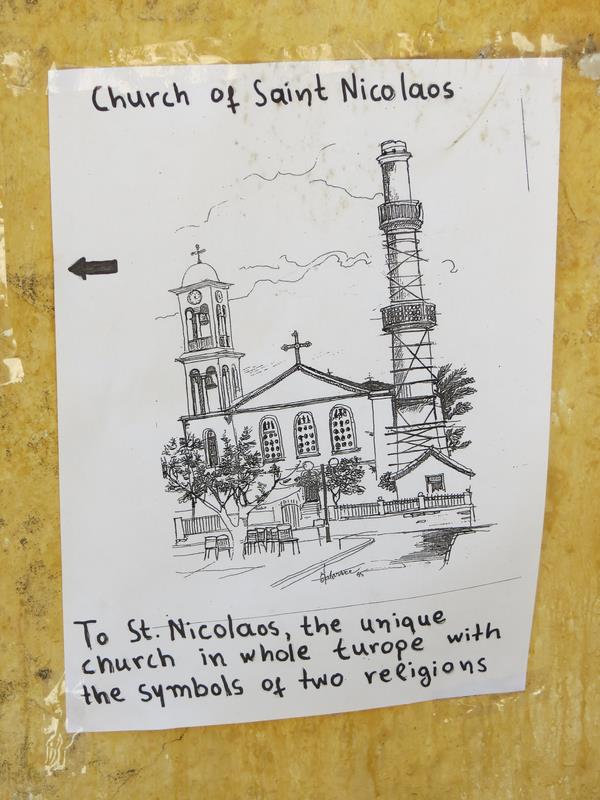 Church of Saint Nicolaos
To St. Nicolaos, the unique
church in whole Europe with
the symbols of two religions